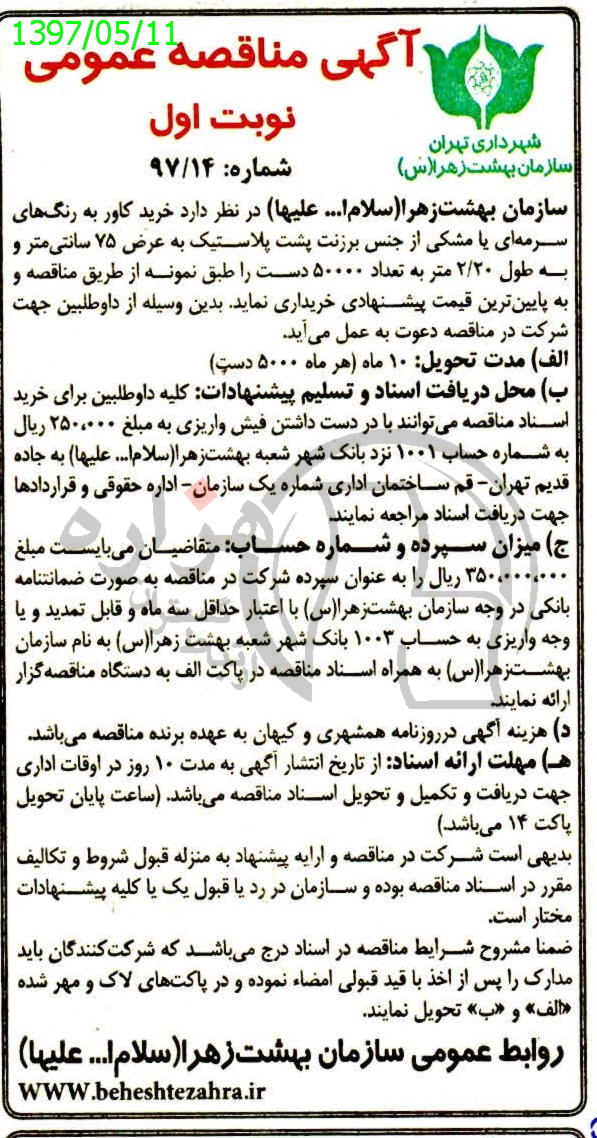 1397/05/11
آگهی مناقصه عمومی
نوبت اول
شماره: ۹۷/۱۴
شهرداری تهران
سازمان بهشت‌زهرا(س)
سازمان بهشت‌زهرا(سلام‌ا... علیها) در نظر دارد خرید کاور به رنگ‌های
سرمه‌ای یا مشکی از جنس برزنت پشت پلاستیک به عرض ۷۵ سانتی‌متر و
به طول ۲/۲۰ متر به تعداد ۵۰۰۰۰ دست را طبق نمونه از طریق مناقصه و
به پایین‌ترین قیمت پیشنهادی خریداری نماید. بدین وسیله از داوطلبین جهت
شرکت در مناقصه دعوت به عمل می‌آید.
الف) مدت تحویل: ۱۰ ماه (هر ماه ۵۰۰۰ دست)
ب) محل دریافت اسناد و تسلیم پیشنهادات: کلیه داوطلبین برای خرید
اسناد مناقصه می‌توانند با در دست داشتن فیش واریزی به مبلغ ۲۵۰،۰۰۰ ریال
به شماره حساب ۱۰۰۱ نزد بانک شهر شعبه بهشت‌زهرا(سلام‌ا... علیها) به جاده
قدیم تهران- قم ساختمان اداری شماره یک سازمان- اداره حقوقی و قراردادها
جهت دریافت اسناد مراجعه نمایند.
ج) میزان سپرده و شماره حساب: متقاضیان می‌بایست مبلغ
۳۵۰،۰۰۰،۰۰۰ ریال را به عنوان سپرده شرکت در مناقصه به صورت ضمانتنامه
بانکی در وجه سازمان بهشت‌زهرا(س) با اعتبار حداقل سه ماه و قابل تمدید و یا
وجه واریزی به حساب ۱۰۰۳ بانک شهر شعبه بهشت زهرا(س) به نام سازمان
بهشت‌زهرا(س) به همراه اسناد مناقصه در پاکت الف به دستگاه مناقصه‌گزار
ارائه نمایند.
د) هزینه آگهی درروزنامه همشهری و کیهان به عهده برنده مناقصه می‌باشد.
هـ) مهلت ارائه اسناد: از تاریخ انتشار آگهی به مدت ۱۰ روز در اوقات اداری
جهت دریافت و تکمیل و تحویل اسناد مناقصه می‌باشد. (ساعت پایان تحویل
پاکت ۱۴ می‌باشد.)
بدیهی است شرکت در مناقصه و ارایه پیشنهاد به منزله قبول شروط و تکالیف
مقرر در اسناد مناقصه بوده و سازمان در رد یا قبول یک یا کلیه پیشنهادات
مختار است.
ضمنا مشروح شرایط مناقصه در اسناد درج می‌باشد که شرکت‌کنندگان باید
مدارک را پس از اخذ با قید قبولی امضاء نموده و در پاکت‌های لاک و مهر شده
«الف» و «ب» تحویل نمایند.
روابط عمومی سازمان بهشت‌زهرا(سلام‌ا... علیها)
WWW.beheshtezahra.ir
هزاره